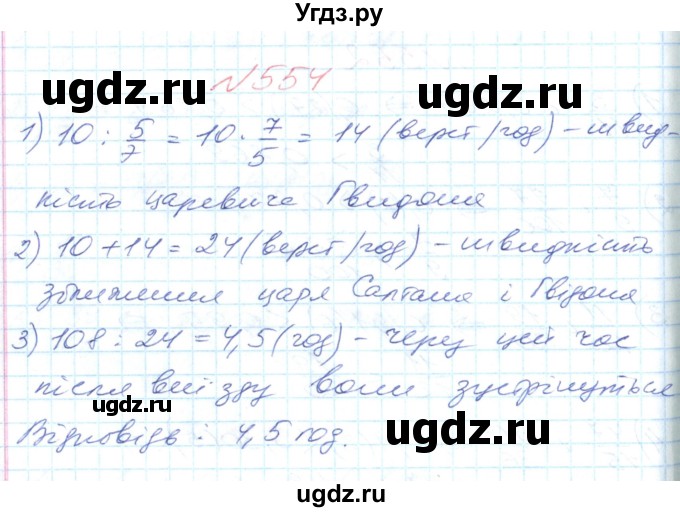 Угдз.ру
ugdz.ru
ugdz.ru
№554
1) 10 : 5/7 = 10 · 7/5 = 14 (верст/год) – швид-
кість царевича Гвидона
2) 10 + 14 = 24 (верст/год) – швидкість
зближення царя Салтана і Гвідона
ugdz.ru
3) 108 : 24 = 4,5 (год) – через цей час
після виїзду вони зустрінуться
ugdz.ru
ugdz.ru
Відповідь : 4,5 год.
ugdz.ru
ugdz.ru